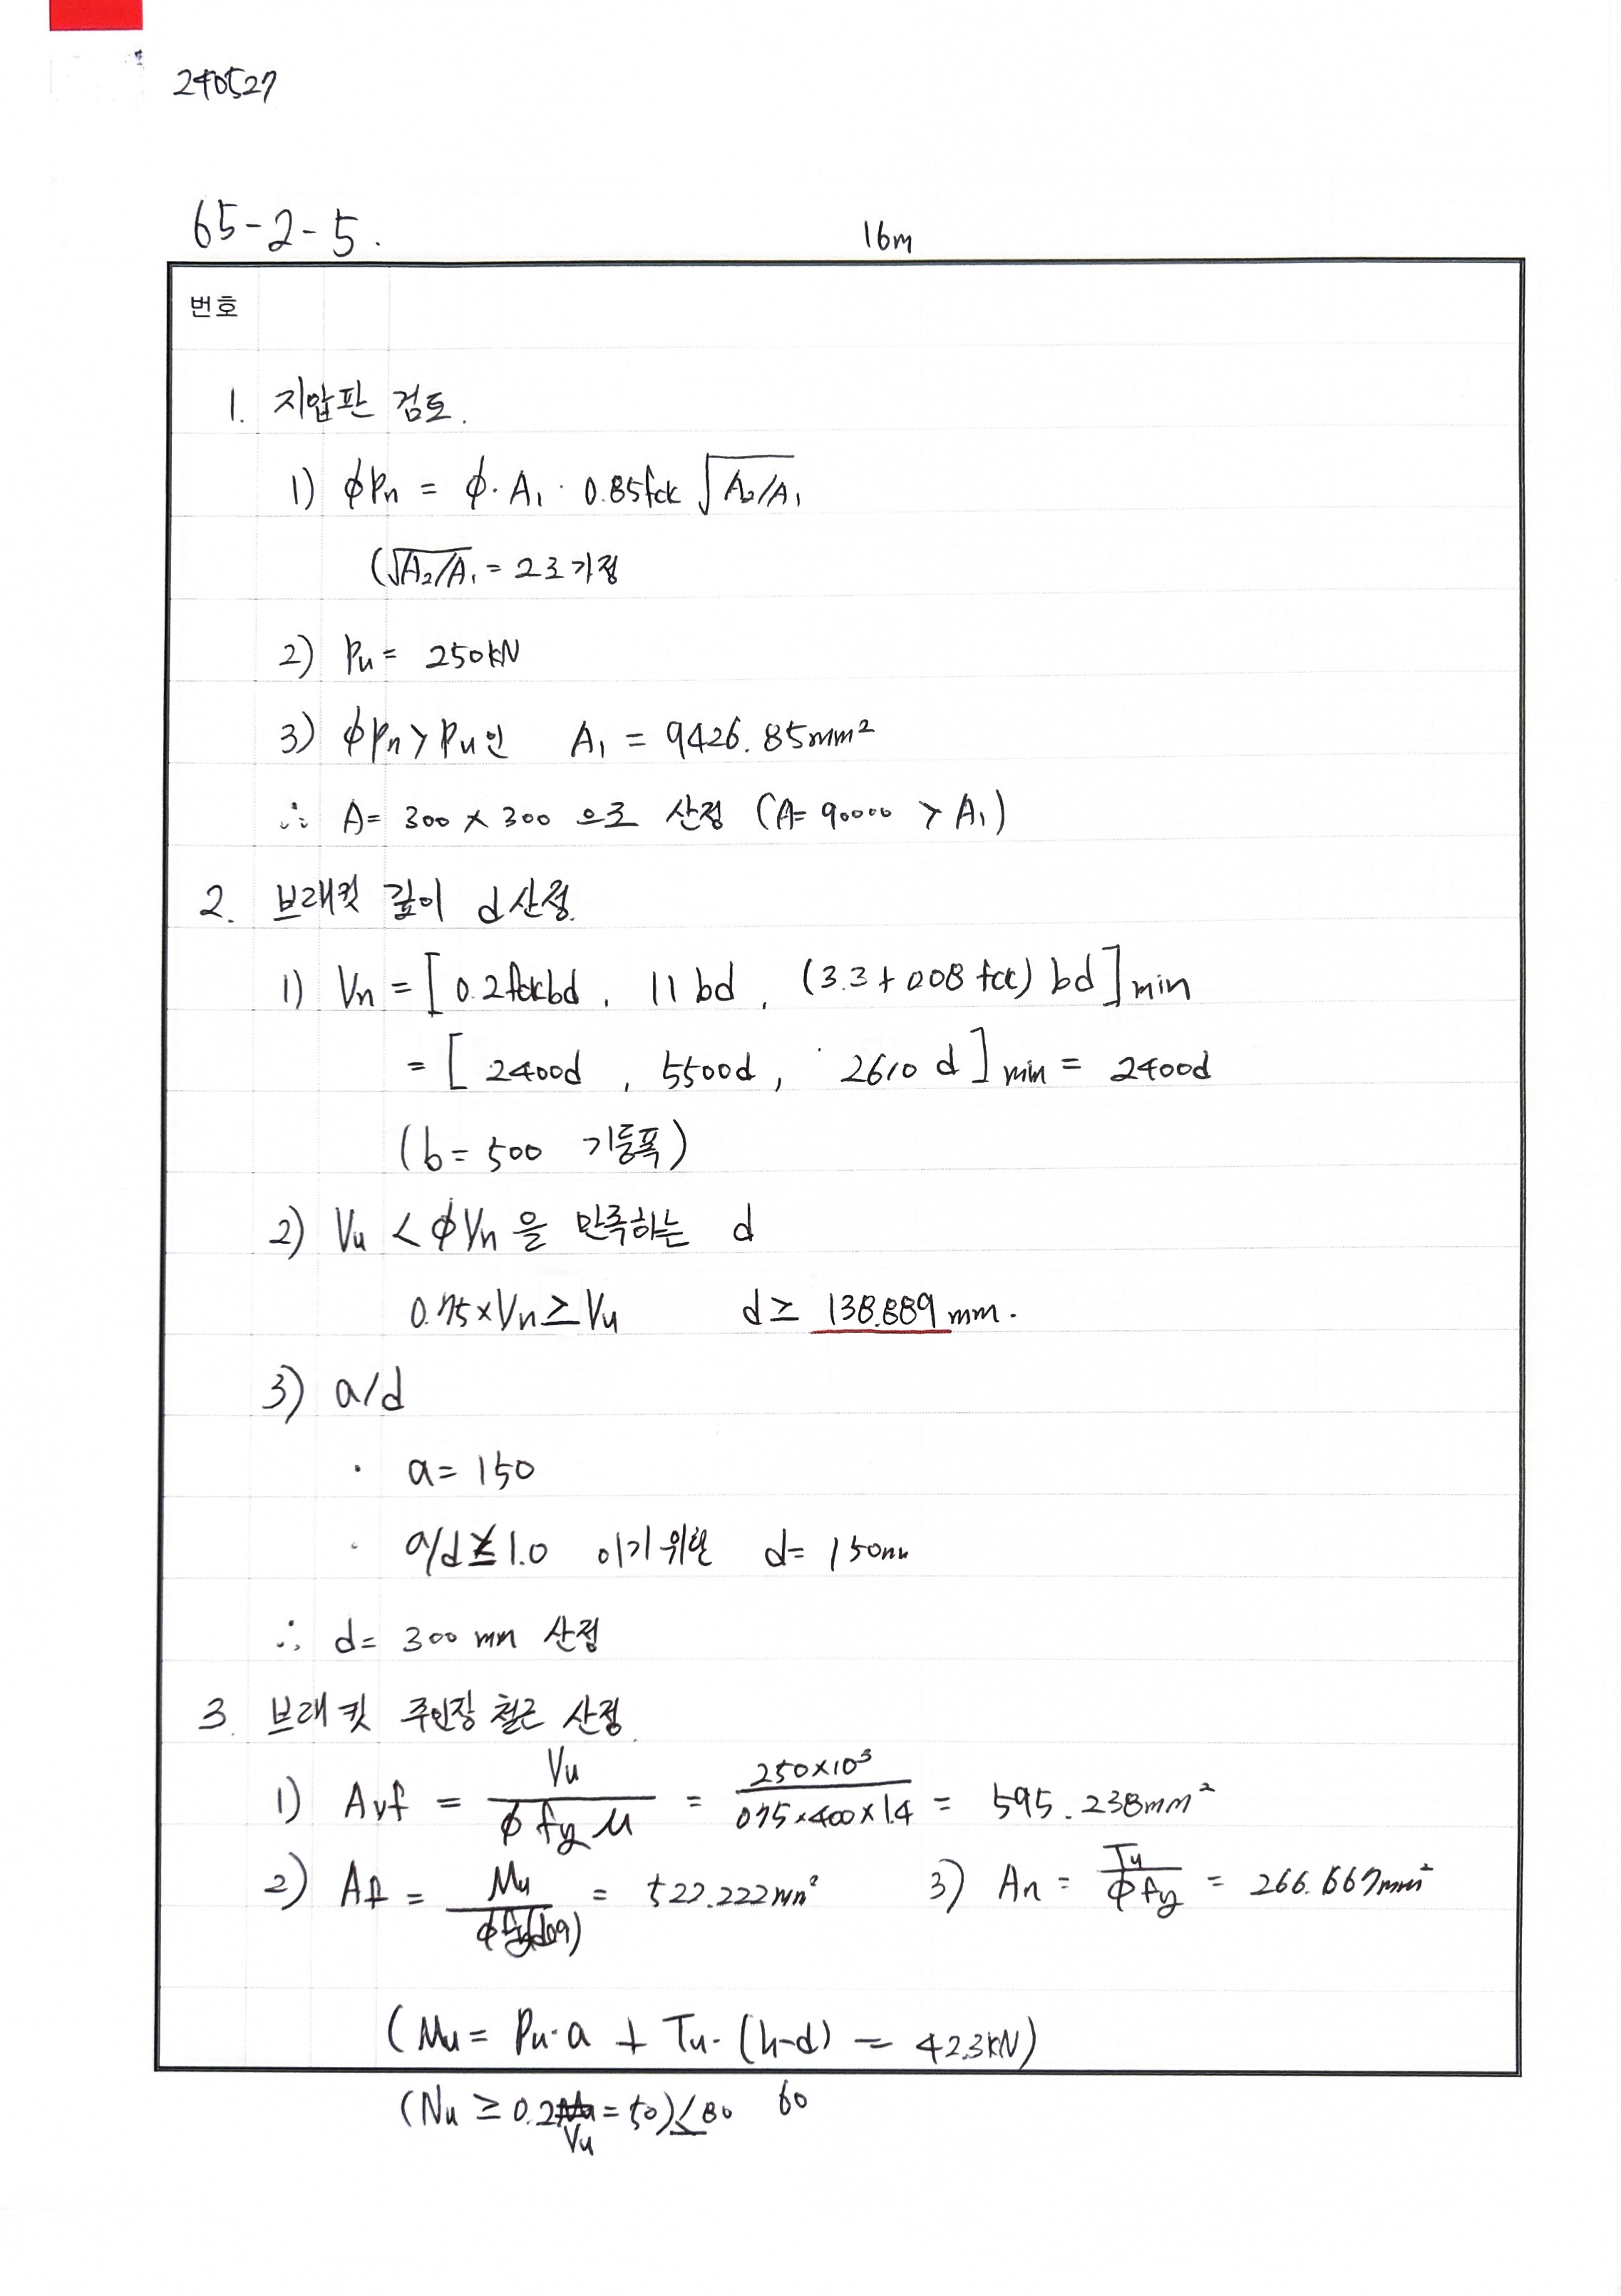 240527
65-2-5. 16m
번호
1. 지압판 검토.
1) ϕPn = ϕ · A₁ · 0.85fck √A₂/A₁
(√A₂/A₁ = 2로 가정
2) Pu = 250kN
3) ϕPn > Pu인 A₁ = 9426.85mm²
∴ A = 300 × 300 으로 산정 (A = 90000 > A₁)
2. 브래킷 깊이 d 산정.
1) Vn = [0.2fckbd, 11bd, (3.3 + 0.08 fck) bd]min
= [2400d, 5500d, 2610 d]min = 2400d
(b = 500 기둥폭)
2) Vu < ϕVn 을 만족하는 d
0.75 × Vn ≥ Vu d ≥ 138.889 mm.
3) a/d
· a = 150
· a/d ≤ 1.0 이기 위한 d = 150mm
∴ d = 300 mm 산정
3. 브래킷 주인장 철근 산정.
1) Avf = Vu / ϕ fy μ = 250×10³ / 0.75×400×1.4 = 595.238mm²
2) Af = Mu / ϕfy(d0.9) = 522.222mm² 3) An = Tu / ϕfy = 266.667mm²
(Mu = Pu·a + Tu·(h-d) = 42.3kN)
(Nu ≥ 0.2Vu = 50) ≤ 80 60